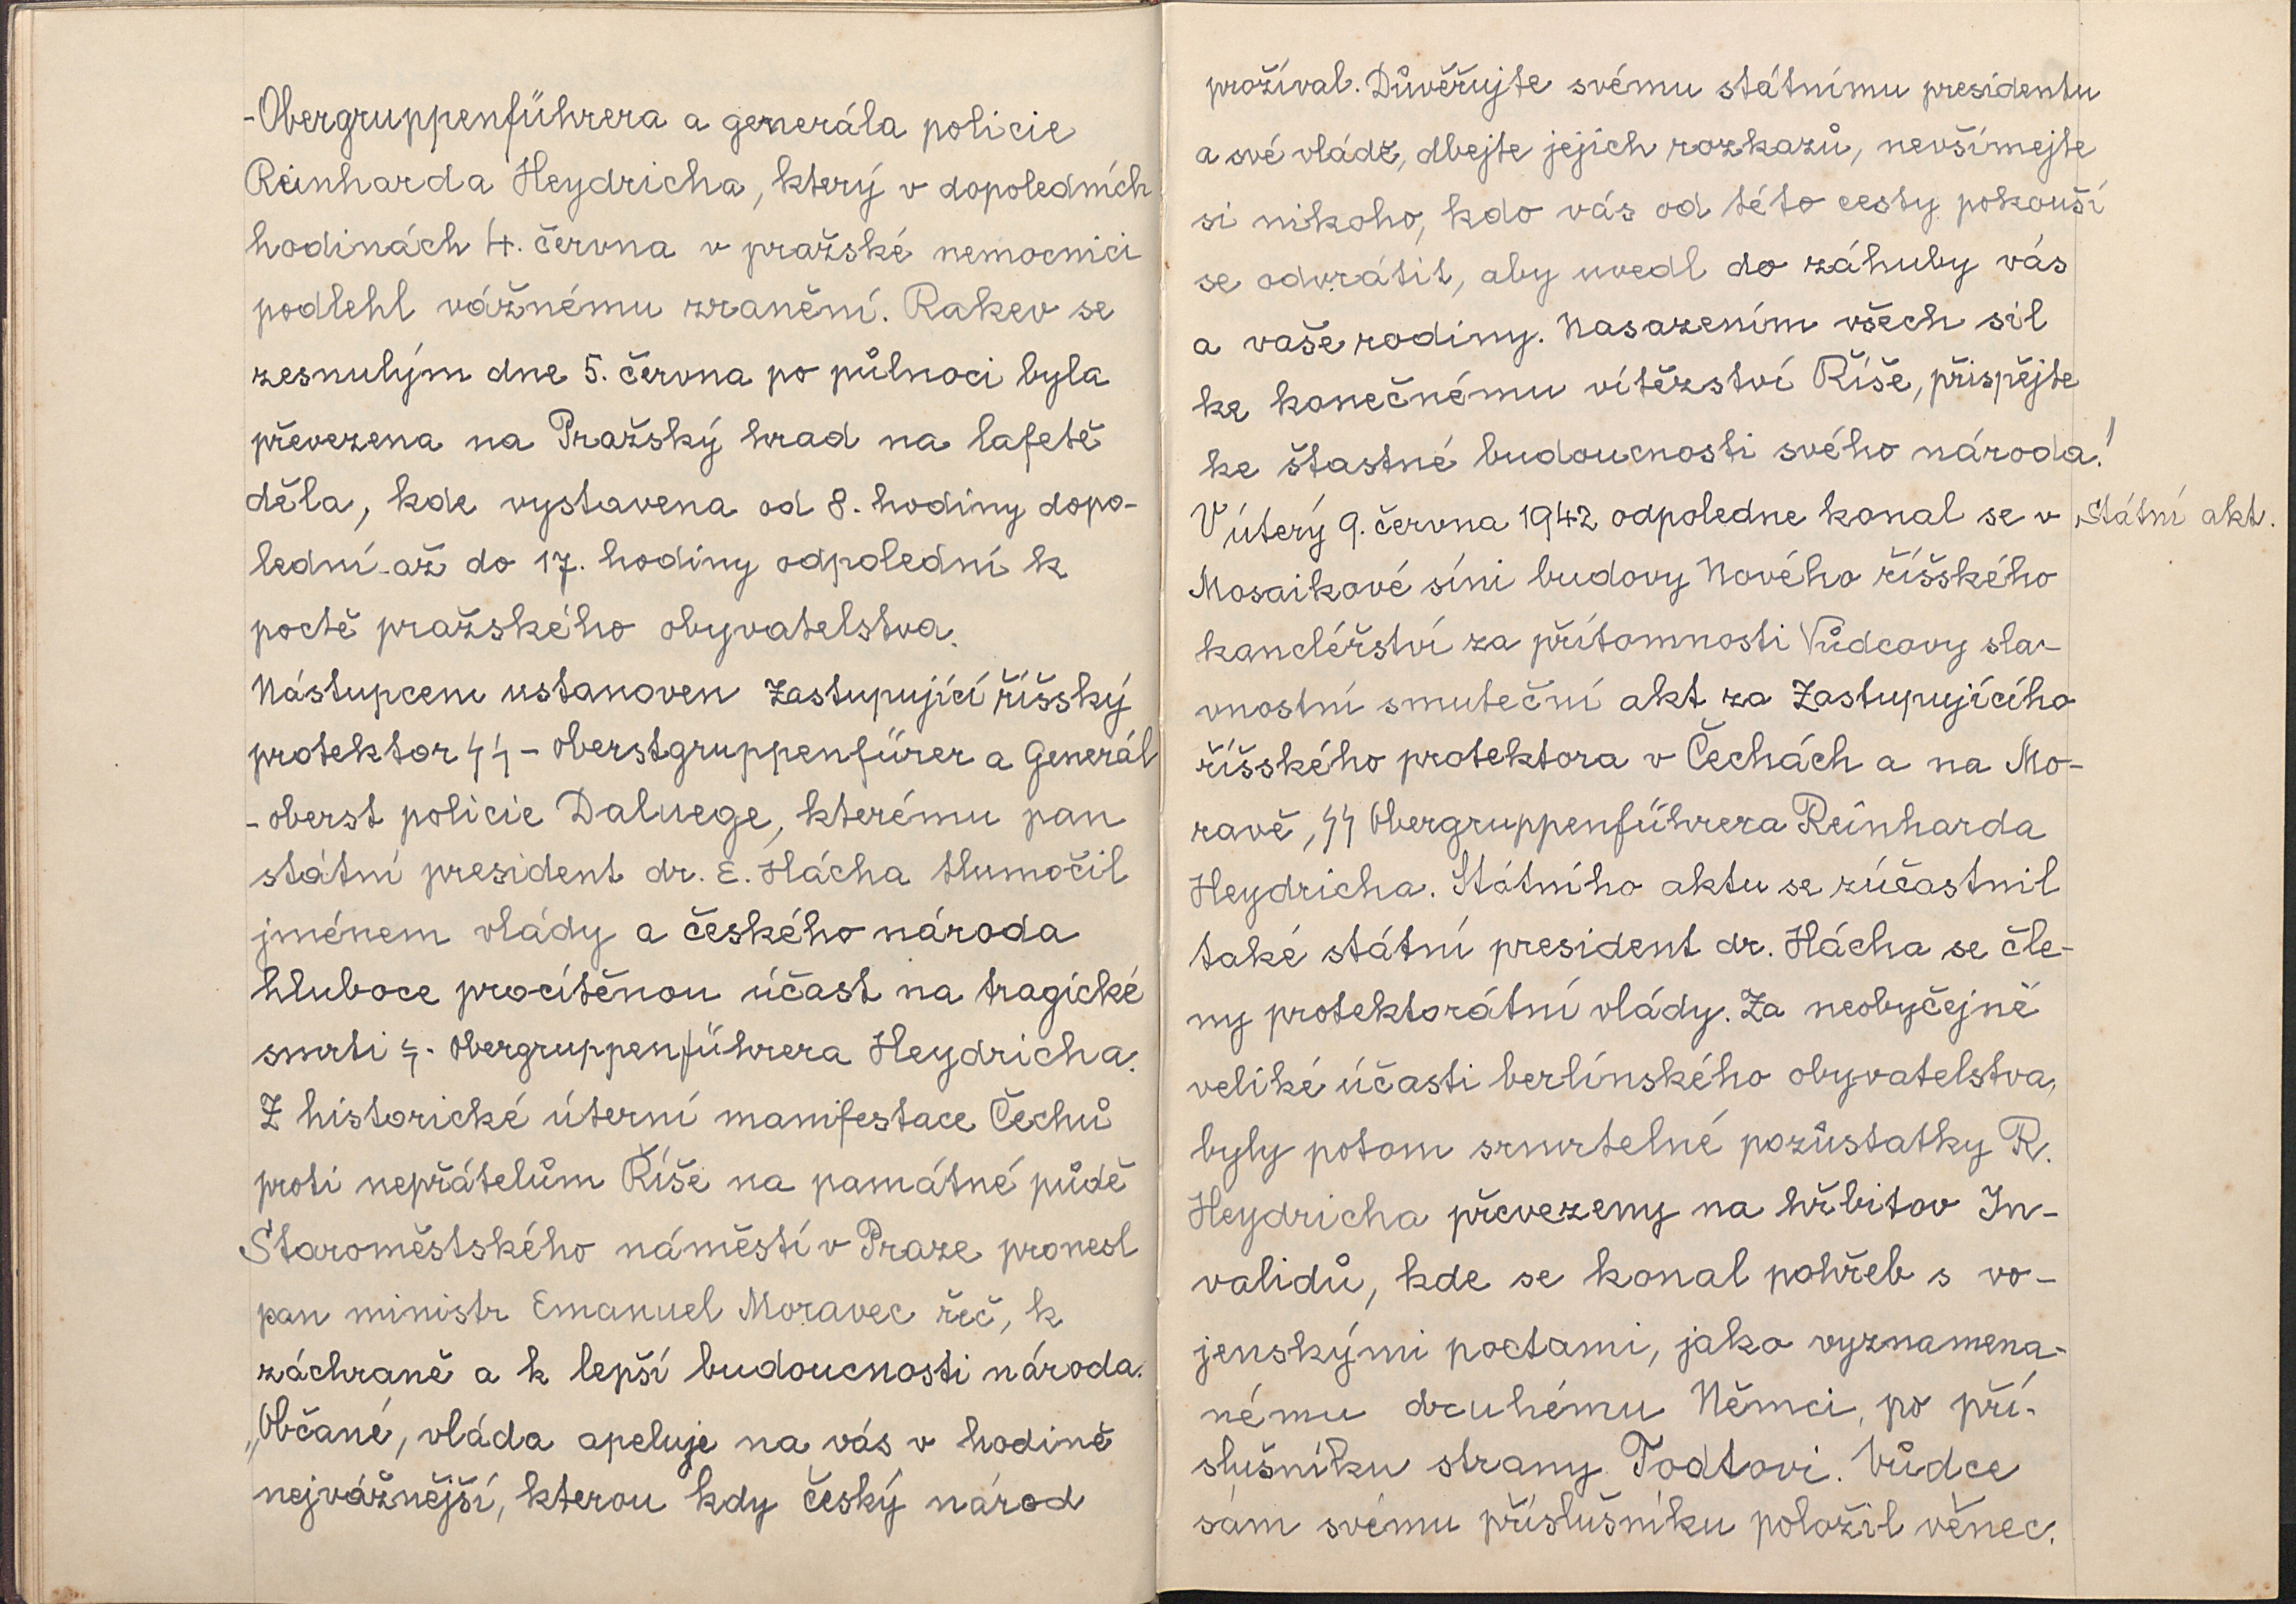 -Obergruppenführera a generála policie
Reinharda Heydricha, který v dopoledních
hodinách 4. června v pražské nemocnici
podlehl vážnému zranění. Rakev se
zesnulým dne 5. června po půlnoci byla
převezena na Pražský hrad na lafetě
děla, kde vystavena od 8. hodiny dopo-
lední až do 17. hodiny odpolední k
poctě pražského obyvatelstva.
Nástupcem ustanoven Zastupující říšský
protektor SS - Oberstgruppenfürer a Generál
-oberst policie Daluege, kterému pan
státní president dr. E. Hácha tlumočil
jménem vlády a českého národa
hluboce procítěnou účast na tragické
smrti SS- Obergruppenführera Heydricha.
Z historické úterní manifestace Čechů
proti nepřátelům Říše na památné půdě
Staroměstského náměstí v Praze pronesl
pan ministr Emanuel Moravec řeč, k
záchraně a k lepší budoucnosti národa.
„Občané, vláda apeluje na vás v hodině
nejvážnější, kterou kdy český národ
prožíval. Důvěřujte svému státnímu presidentu
a své vládě, dbejte jejich rozkazů, nevšímejte
si nikoho, kdo vás od této cesty pokouší
se odvrátit, aby uvedl do záhuby vás
a vaše rodiny. Nasazením všech sil
ke konečnému vítězství Říše, přispějte
ke štastné budoucnosti svého národa!
V úterý 9. června 1942 odpoledne konal se v
Státní akt.
Mosaikové síni budovy Nového říšského
kancléřství za přítomnosti Vůdcovy sla-
vnostní smuteční akt za Zastupujícího
říšského protektora v Čechách a na Mo-
ravě, SS Obergruppenführera Reinharda
Heydricha. Státního aktu se zúčastnil
také státní president dr. Hácha se čle-
ny protektorátní vlády. Za neobyčejně
veliké účasti berlínského obyvatelstva,
byly potom smrtelné pozůstatky R.
Heydricha převezeny na hřbitov In-
validů, kde se konal pohřeb s vo-
jenskými poctami, jako vyznamena-
nému druhému Němci, po pří-
slušníku strany Todtovi. Vůdce
sám svému příslušníku položil věnec.